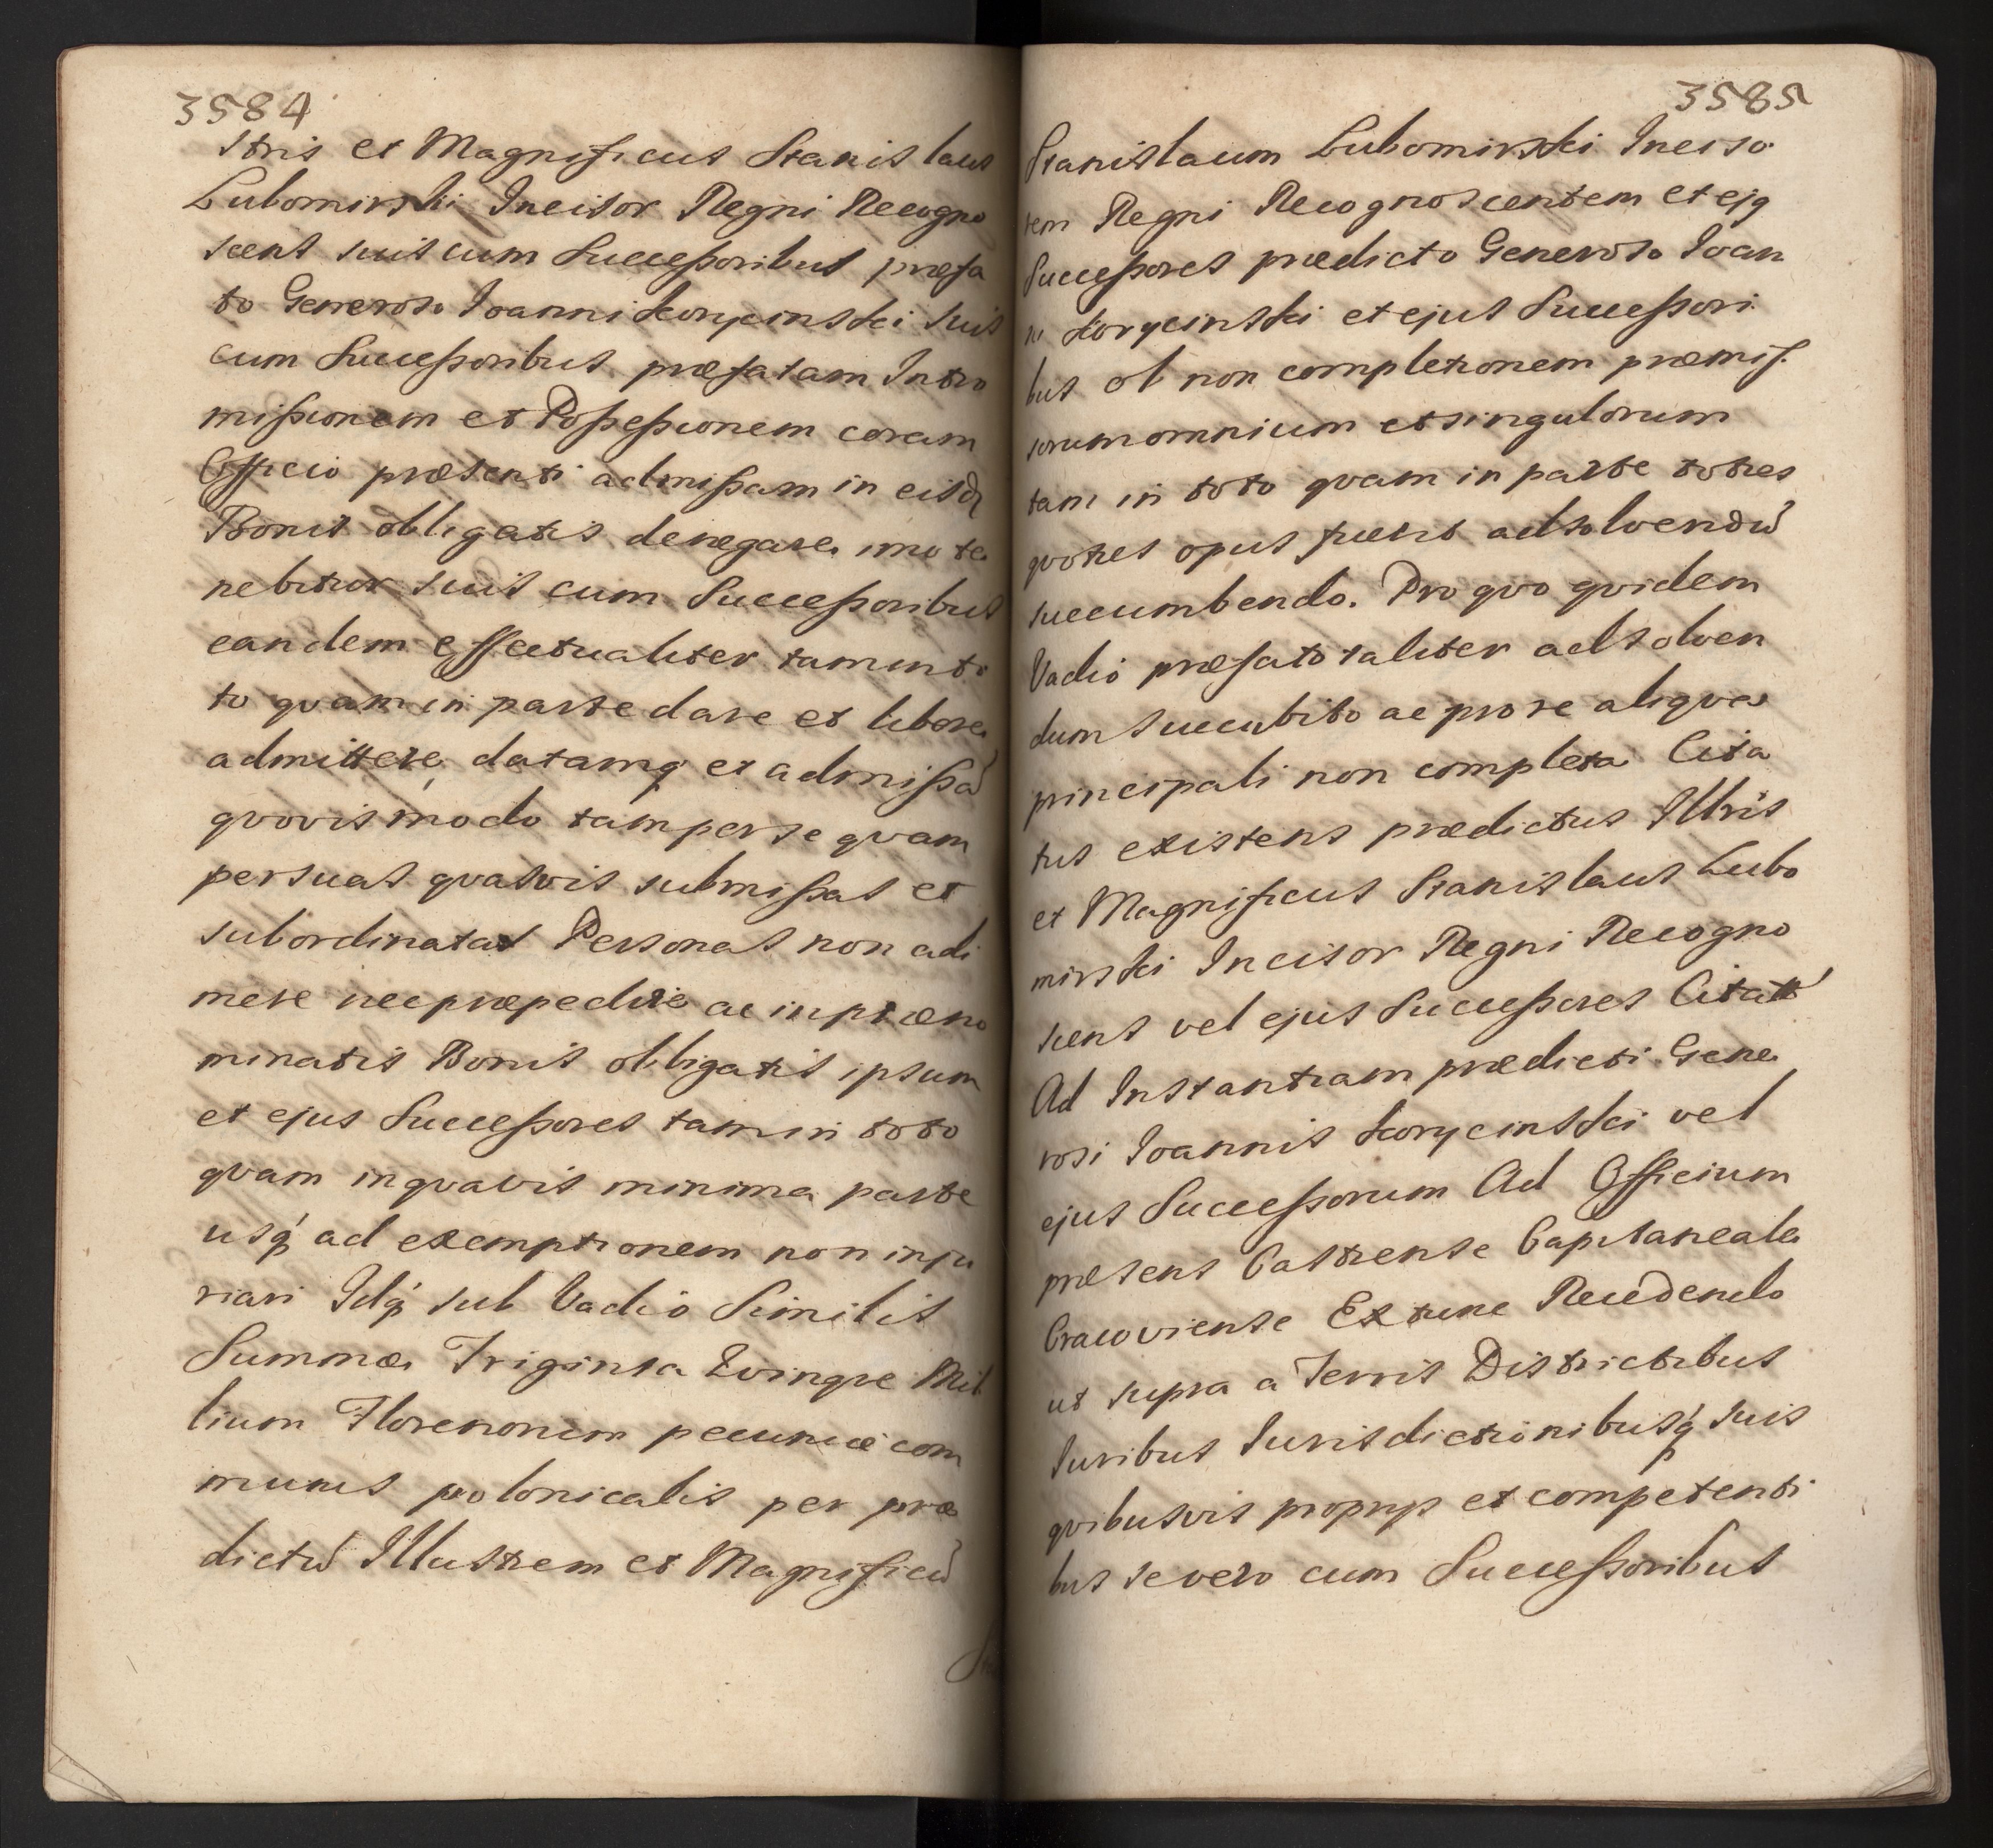 3584
Ittris et Magnificus Stanislaus
Lubomirski Incisor Regni Recogno
scens suis cum Successoribus præfa
to Generoso Joanni Korycinski suis
cum Successoribus præfatam Intro
missionem et Possessionem coram
Officio præsenti admissam in eisdq
Bonis obligatis denegare imo te
nebitur suis cum Successoribus
eandem effectualiter tam in to
to quam in parte dare et libere
admittere, datamq et admissã
quovis modo tam per se quam
per suas quasvis submissas et
subordinatas Personas non adi
mere nec præpedire ac in præno
minatis Bonis obligatis ipsum
et ejus Successores tam in toto
quam in quavis minima parte
usq ad exemptionem non inju
riari Idq sub Vadio Similis
Summæ Triginta Quinque Mil
lium Florenorum pecuniæ com
munis polonicalis per præ
dictũ Illustrem et Magnificũ
3585
Stanislaum Lubomirski Inciso
rem Regni Recognoscentem et ejq
Successores prædicto Generoso Joan
ni Korycinski et ejus Successori
bus ob non completionem præmis
sorum omnium et singulorum
tam in toto quam in parte toties
quoties opus fuerit adsolvendũ
succumbendo. Pro quo quidem
Vadio præfato taliter adsolven
dum succubito ac pro re aliqua
principali non completa Cita
tus existens prædictus Illtris
et Magnificus Stanislaus Lubo
mirski Incisor Regni Recogno
scens vel ejus Successores Citati
Ad Instantiam prædicti Gene
rosi Joannis Korycinski vel
ejus Successorum Ad Officium
præsens Castrense Capitaneale
Cracoviense Ex tunc Recedendo
ut supra a Terris Districtibus
Juribus Jurisdictionibusq suis
quibusvis proprijs et competenti
bus se vero cum Successoribus